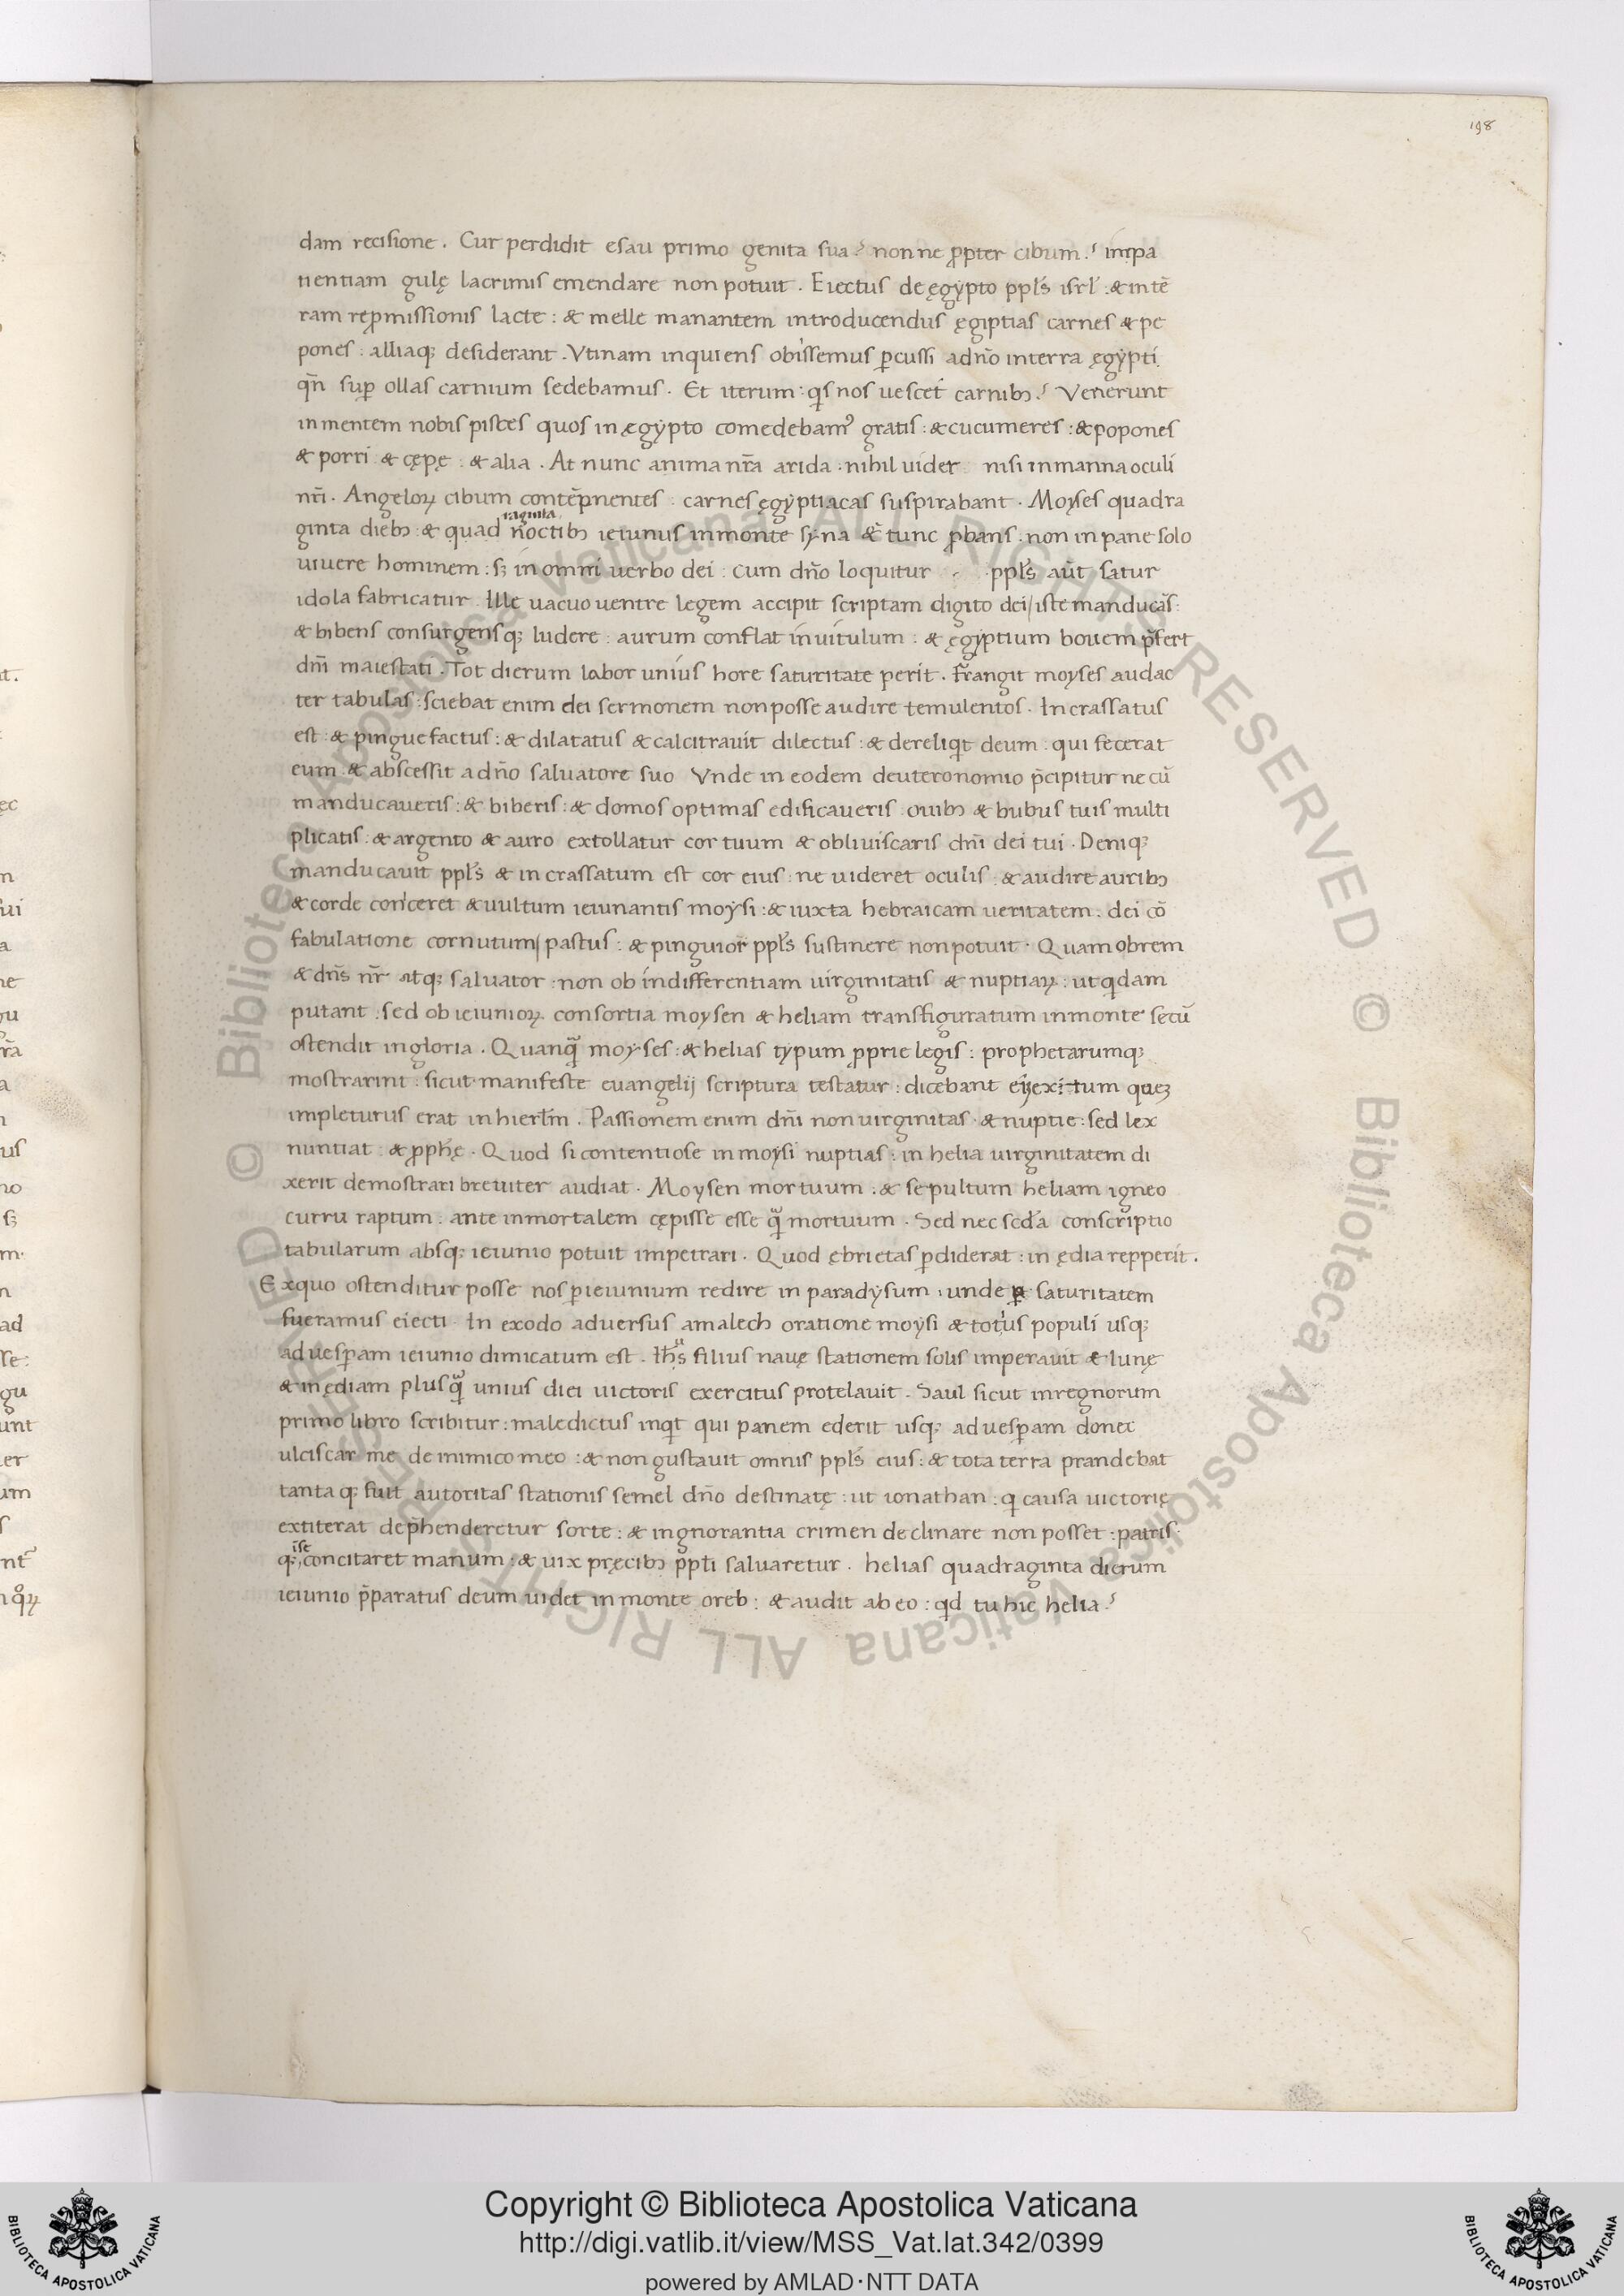 198
dam recisione . Cur perdidit esau primo genita sua ? non ne ꝓpter cibum ? impa
tientiam gulę lacrimis emendare non potuit . Eiectus de ęgẏpto ppl̄s isrl̄ : & in tē
ram reꝓmissionis lacte : & melle manantem introducendus ęgiptias carnes & pe
pones : alliaq; desiderant . Vtinam inquiens obissemus ꝑcussi a dn̄o in terra ęgẏpti
qn̄ suꝑ ollas carnium sedebamus . Et iterum : qis nos uescet carnibꝫ ? Venerunt
in mentem nobis pisces quos in ęgẏpto comedebamꝰ gratis : & cucumeres : & popones
& porri & cępę : & alia . At nunc anima nr̄a arida . nihil uider nisi in manna oculi
nr̄i . Angeloꝝ cibum contēpnentes : carnes ęgẏptiacas suspirabant . Moẏses quadra
raginta
ginta diebꝫ : & quad noctibꝫ ieiunus in monte sẏna & tunc ꝓbans . non in pane solo
uiuere hominem : sꝫ in omni uerbo dei : cum dn̄o loquitur ppl̄s aūt satur
idola fabricatur . Ille uacuo uentre legem accipit scriptam digito dei / iste manducās :
& bibens consurgensq; ludere : aurum conflat in uitulum : & ęgẏptium bouem p̄fert
dn̄i maiestati . Tot dierum labor unius hore saturitate perit . Frangit moẏses audac
ter tabulas : sciebat enim dei sermonem non posse audire temulentos . Incrassatus
est : & pingue factus : & dilatatus & calcitrauit dilectus : & dereliqit deum : qui fecerat
eum & abscessit a dn̄o saluatore suo Vnde in eodem deuteronomio p̄cipitur ne cū
manducaueris : & biberis : & domos optimas edificaueris ouibꝫ & bubus tuis multi
plicatis : & argento & auro extollatur cor tuum & obliuiscaris dn̄i dei tui . Deniq;
manducauit ppl̄s & in crassatum est cor eius : ne uideret oculis : & audire auribꝫ
& corde coniceret & uultum ieiunantis moẏsi : & iuxta hebraicam ueritatem : dei cō
fabulatione cornutum / pastus : & pinguior ppl̄s sustinere non potuit . Quam obrem
& dn̄s nr̄ atq; saluator : non ob indifferentiam uirginitatis & nuptiaꝝ : ut qidam
putant : sed ob ieiunioꝝ consortia moysen & heliam transfiguratum in monte secū
ostendit in gloria . Quanqͣ moẏses : & helias tẏpum ꝓprie legis : prophetarumq;
mostrarint : sicut manifeste euangelij scriptura testatur : dicebant exitum quez
impleturus erat in hierl̄m . Passionem enim dn̄i non uirginitas & nuptie : sed lex
nuntiat : & ꝓphę . Quod si contentiose in moẏsi nuptias : in helia uirginitatem di
xerit demostrari breuiter audiat . Moysen mortuum : & sepultum heliam igneo
curru raptum : ante inmortalem cępisse esse qͣ mortuum . Sed nec scd̄a conscriptio
tabularum absq; ieiunio potuit impetrari . Quod ębrietas ꝑdiderat : in ędia repperit .
Exquo ostenditur posse nos ꝑ ieiunium redire in paradẏsum : unde ꝑ saturitatem
fueramus eiecti . In exodo aduersus amalech oratione moẏsi & totius populi usq;
ad uesꝑam ieiunio dimicatum est . Ihs̄ filius nauę stationem solis imperauit & lunę
& inędiam plusqͣ unius diei uictoris exercitus protelauit . Saul sicut in regnorum
primo libro scribitur : maledictus inqit qui panem ederit usq; ad uesꝑam donec
ulciscar me de inimico meo : & non gustauit omnis ppl̄s eius : & tota terra prandebat
tanta q; fuit autoritas stationis semel dn̄o destinatę : ut ionathan : qi causa uictorię
extiterat dep̄henderetur sorte : & ingnorantia crimen declinare non posset : patris
ise
q; concitaret manum : & uix pręcibꝫ ppl̄i saluaretur . helias quadraginta dierum
ieiunio p̄paratus deum uidet in monte oreb : & audit ab eo : qid tu hic helia ?
Copyright © Biblioteca Apostolica Vaticana
http://digi.vatlib.it/view/MSS_Vat.lat.342/0399
powered by AMLAD · NTT DATA
BIBLIOTECA APOSTOLICA VATICANA
BIBLIOTECA APOSTOLICA VATICANA